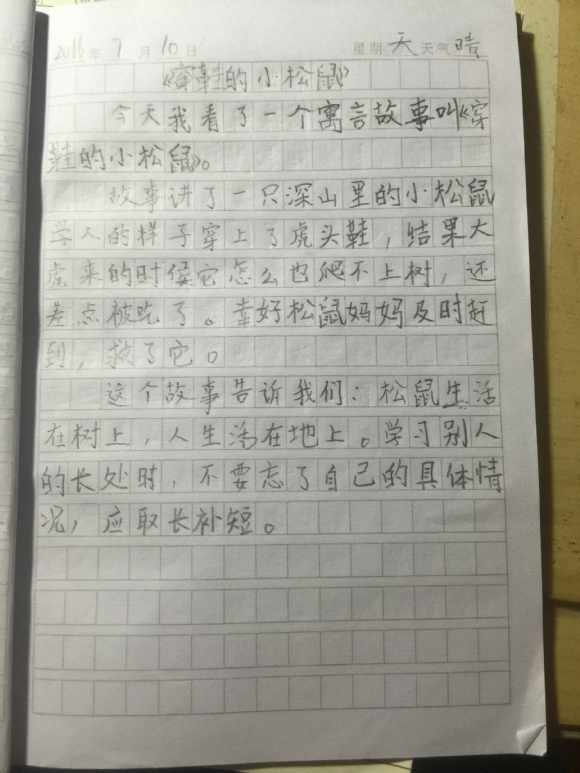 2016年7月10日 星期天天气晴
《穿鞋的小松鼠》
今天我看了一个寓言故事叫《穿
鞋的小松鼠》。
故事讲了一只深山里的小松鼠
学人的样子穿上了虎头鞋，结果大
虎来的时侯它怎么也爬不上树，还
差点被吃了。幸好松鼠妈妈及时赶
到，救了它。
这个故事告诉我们：松鼠生活
在树上，人生活在地上。学习别人
的长处时，不要忘了自己的具体情
况，应取长补短。